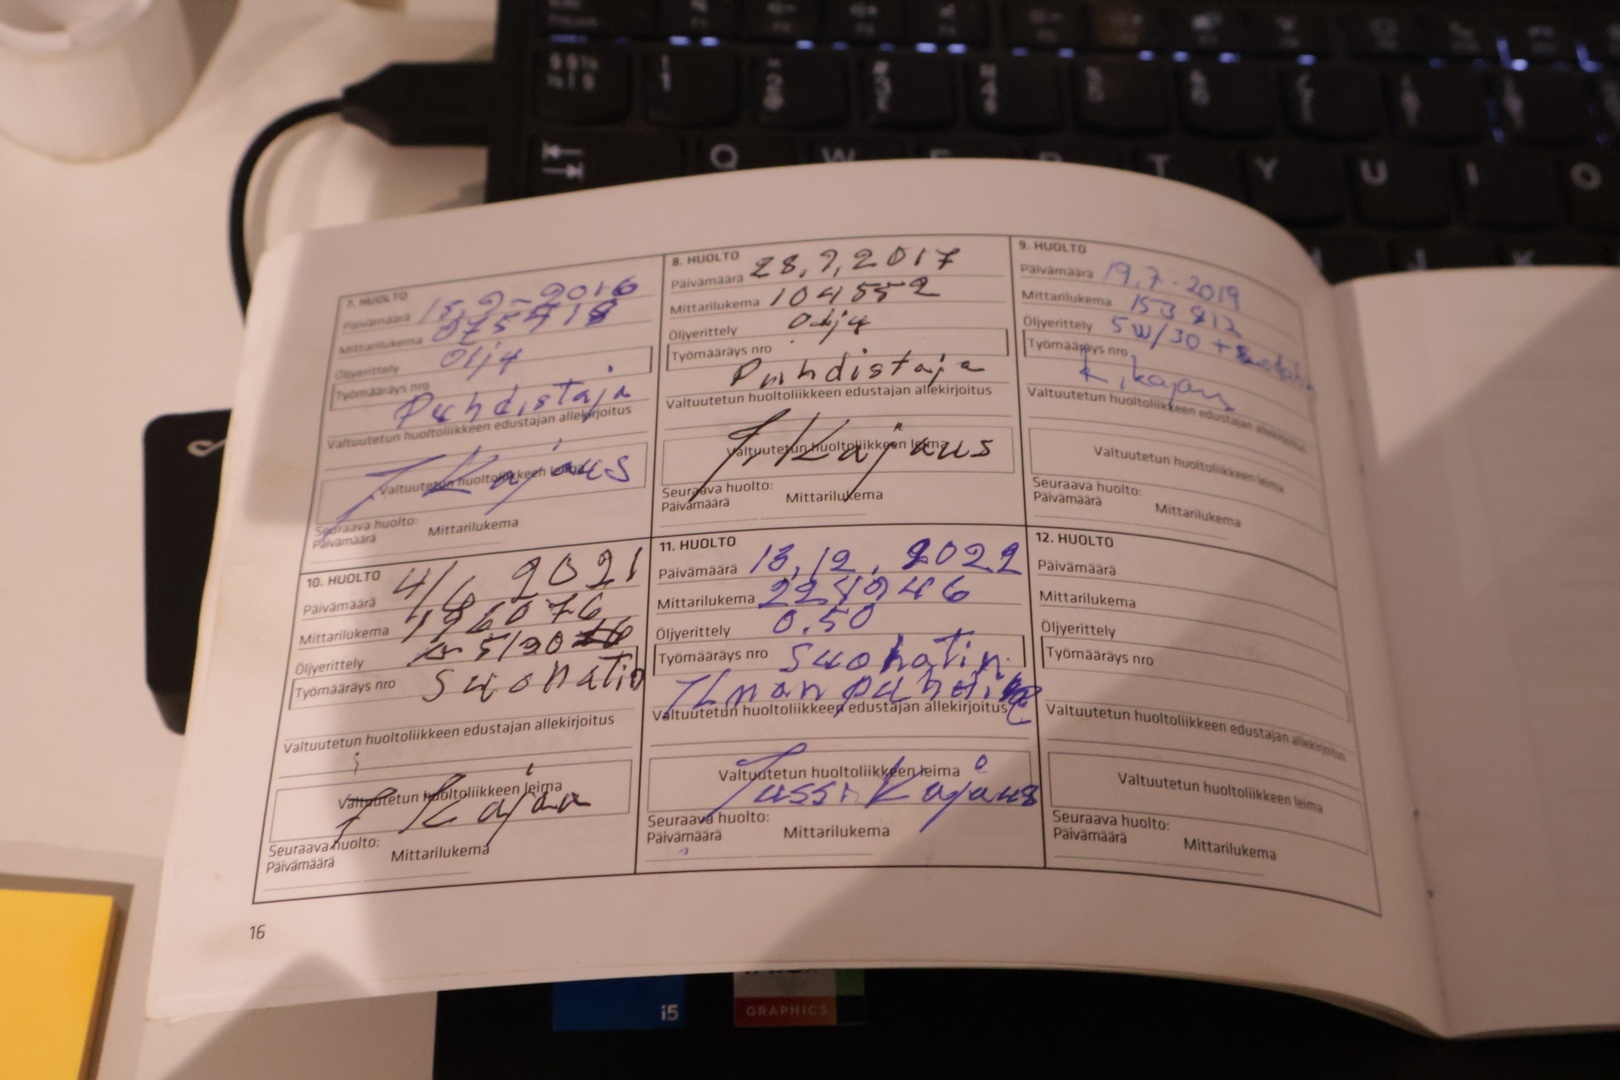 Q W E R T Y U I O
7. HUOLTO
Päivämäärä 15.2-2016
Mittarilukema
Öljyerittely Öljy
Työmääräys nro
Puhdistaja
Valtuutetun huoltoliikkeen edustajan allekirjoitus
J Kajaus
Valtuutetun huoltoliikkeen leima
Seuraava huolto:
Päivämäärä Mittarilukema
8. HUOLTO
Päivämäärä 28,7,2017
Mittarilukema 104552
Öljyerittely Öljy
Työmääräys nro
Puhdistaja
Valtuutetun huoltoliikkeen edustajan allekirjoitus
J Kajaus
Valtuutetun huoltoliikkeen leima
Seuraava huolto:
Päivämäärä Mittarilukema
9. HUOLTO
Päivämäärä 19.7-2019
Mittarilukema 153 812
Öljyerittely 5W/30 +
Työmääräys nro
Valtuutetun huoltoliikkeen edustajan allekirjoitus
Valtuutetun huoltoliikkeen leima
Seuraava huolto:
Päivämäärä Mittarilukema
10. HUOLTO
Päivämäärä 4/6 2021
Mittarilukema 196076
Öljyerittely 5/30
Työmääräys nro Suodatin
Valtuutetun huoltoliikkeen edustajan allekirjoitus
Valtuutetun huoltoliikkeen leima
Seuraava huolto:
Päivämäärä Mittarilukema
11. HUOLTO
Päivämäärä 13,12,2022
Mittarilukema
Öljyerittely 0.50
Työmääräys nro Suodatin
Ilman
Valtuutetun huoltoliikkeen edustajan allekirjoitus
Valtuutetun huoltoliikkeen leima
Jussi Kajaus
Seuraava huolto:
Päivämäärä Mittarilukema
12. HUOLTO
Päivämäärä
Mittarilukema
Öljyerittely
Työmääräys nro
Valtuutetun huoltoliikkeen edustajan allekirjoitus
Valtuutetun huoltoliikkeen leima
Seuraava huolto:
Päivämäärä Mittarilukema
16
i5
GRAPHICS